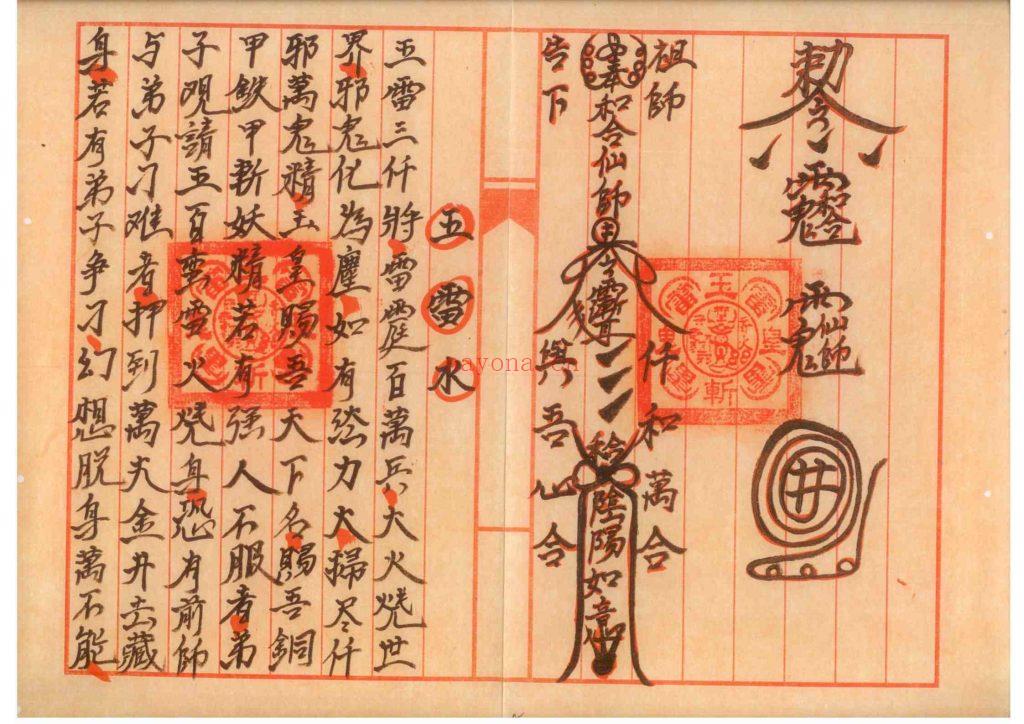 勅令
和合
仙師
井
祖師
仟和萬合
奉和合仙師
陰陽如意
告下
與吾心合
五雷水
五雷三仟將雷霆百萬兵大火燒世
界邪鬼化為塵如有法力大掃尽仟
邪萬鬼精玉皇賜吾天下名賜吾銅
甲鉄甲斬妖精若有強人不服者弟
子魂請五百蛮雷火燒身恐有前師
与弟子刁难者押到萬丈金井去藏
身若有弟子争刁幻想脱身萬不能